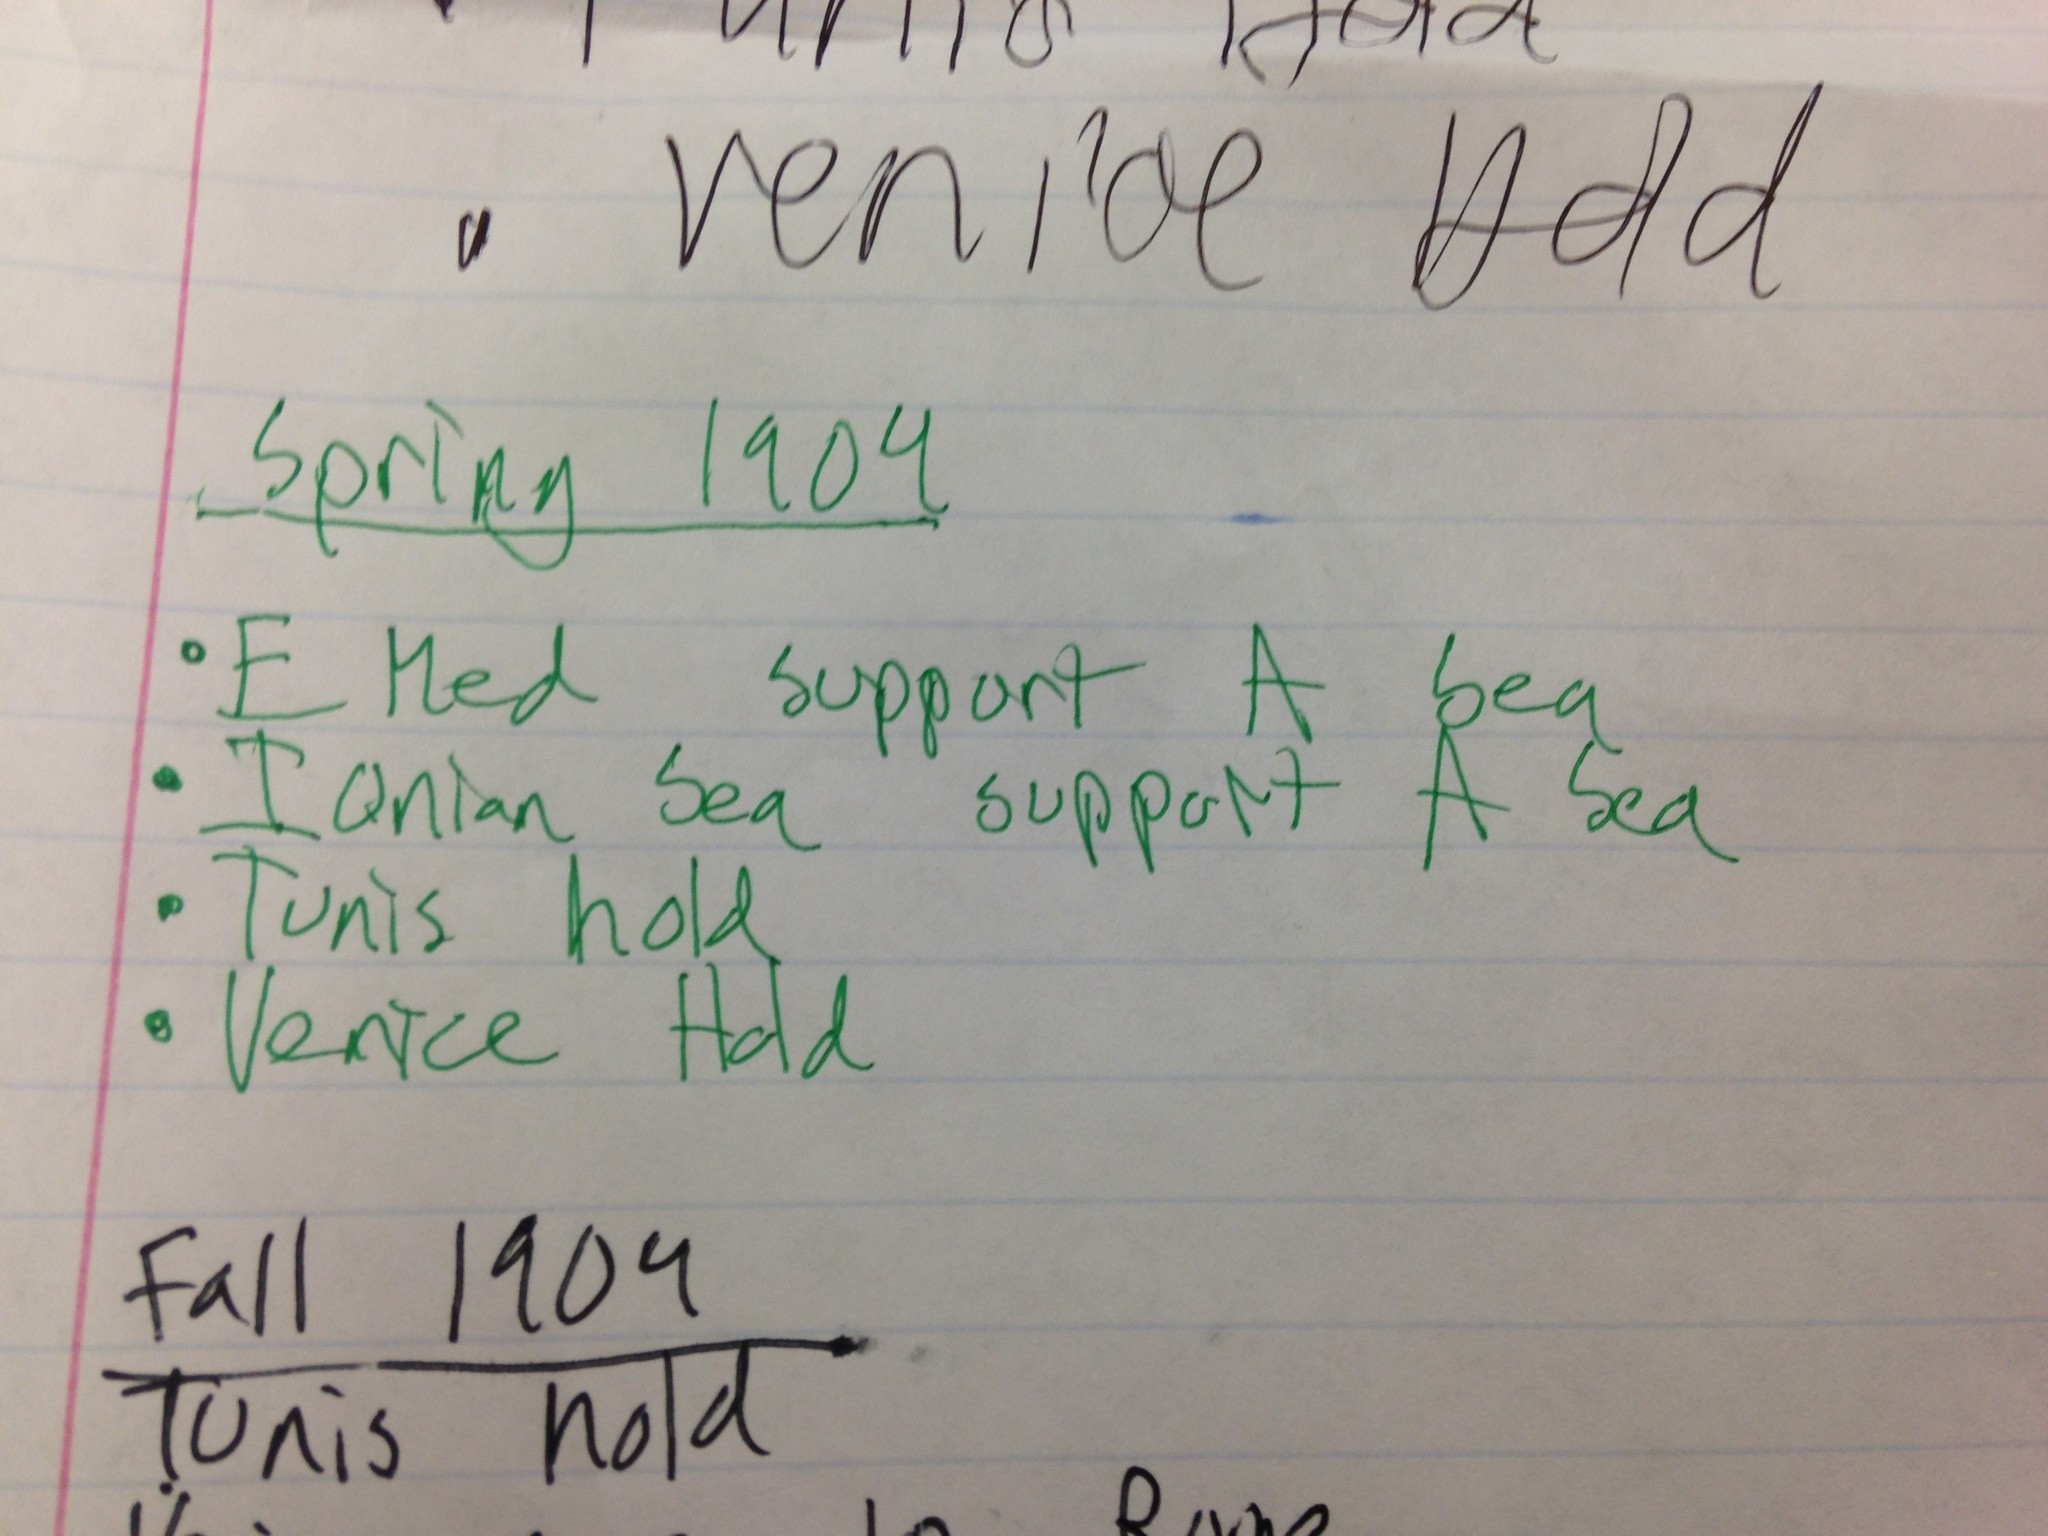 Tunis Hold
Venice Hold
Spring 1904
E Med support A Sea
Ionian Sea support A Sea
Tunis hold
Venice Hold
Fall 1904
Tunis hold
to Rome